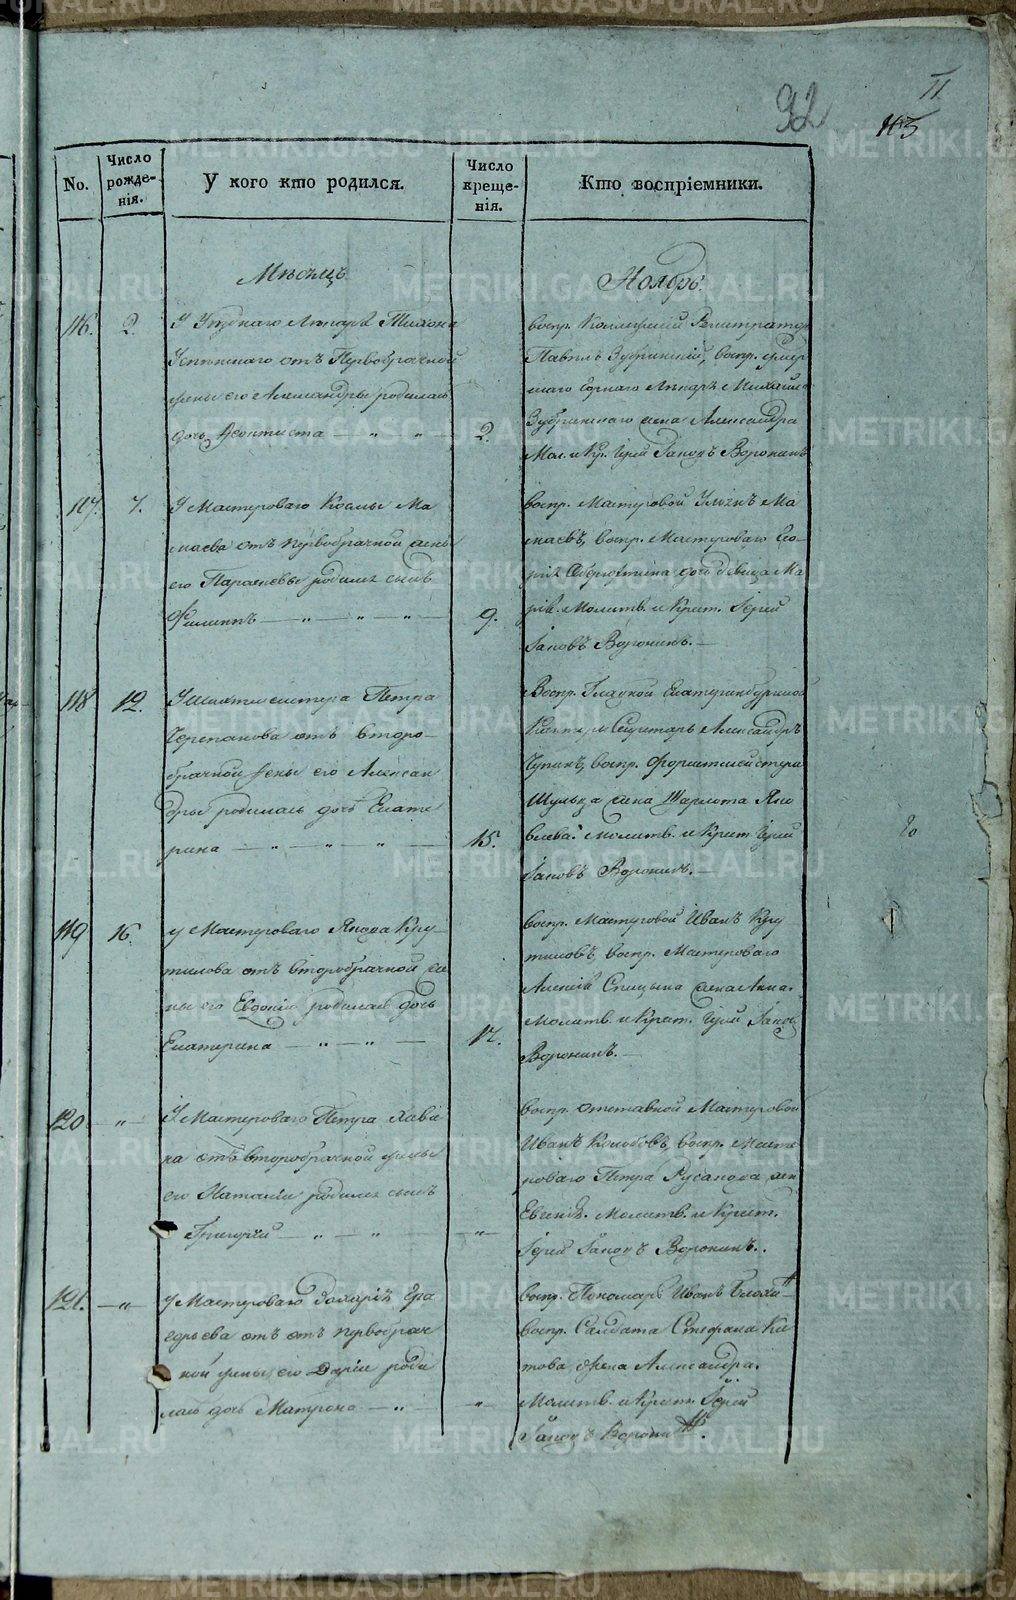 92
11
113
No.
Число рожде-нія.
У кого кто родился.
Число креще-нія.
Кто воспріемники.
Мѣсяцъ
Ноябрь.
116. 2.
У Уѣзднаго Лѣкаря Тихона
Успенскаго отъ Первобрачной
жены его Александры родилась
дочь
2.
воспр. Коллежскій Регистраторъ
Павелъ Зубринскій, воспр.
Лѣкаря Михаила
Зубринскаго жена Александра
Мол. и Кр. Іерей Іаковъ Воронинъ
117. 7.
У Мастероваго Косьмы Ма
каева отъ первобрачной жены
его Параскевы родился сынъ
Филиппъ
9.
воспр. Мастеровой Ма
каевъ, воспр. Мастероваго
дочь дѣвица Ма
рія. Молитв. и Крест. Іерей
Іаковъ Воронинъ.
118 12.
У Шихтмейстера Петра
Черепанова отъ второ-
брачной жены его Алексан
дры родилась дочь Екате
рина
15.
Воспр. Главной Екатеринбургской
Конторы Секретарь Александръ
Чупинъ, воспр.
Шульца жена Шарлота Яко
влева. Молитв. и Крест. Іерей
Іаковъ Воронинъ.
119 16.
У Мастероваго Якова Кру
тикова отъ второбрачной же
ны его Евдокіи родилась дочь
Екатерина
17.
воспр. Мастеровой Иванъ Кру
тиковъ, воспр. Мастероваго
Алексѣя Спицына жена Анна.
Молитв. и Крест. Іерей Іаковъ
Воронинъ.
120 — „ —
У Мастероваго Петра
на отъ второбрачной жены
его Наталіи родился сынъ
Григорій
— „ —
воспр. отставной Мастеровой
Иванъ Колобовъ, воспр. Масте
роваго Петра Русанова жен
Евгенія. Молитв. и Крест.
Іерей Іаковъ Воронинъ.
121. — „
У Мастероваго Захарія Гри
горьева отъ отъ первобрач
ной жены его Дарьи роди
лась дочь Матрона
„
воспр. Пономарь Иванъ
воспр. Салдата Стефана Ки
това жена Александра.
Молитв. и Крест. Іерей
Іаковъ Воронинъ.
METRIKI.GASO-URAL.RU